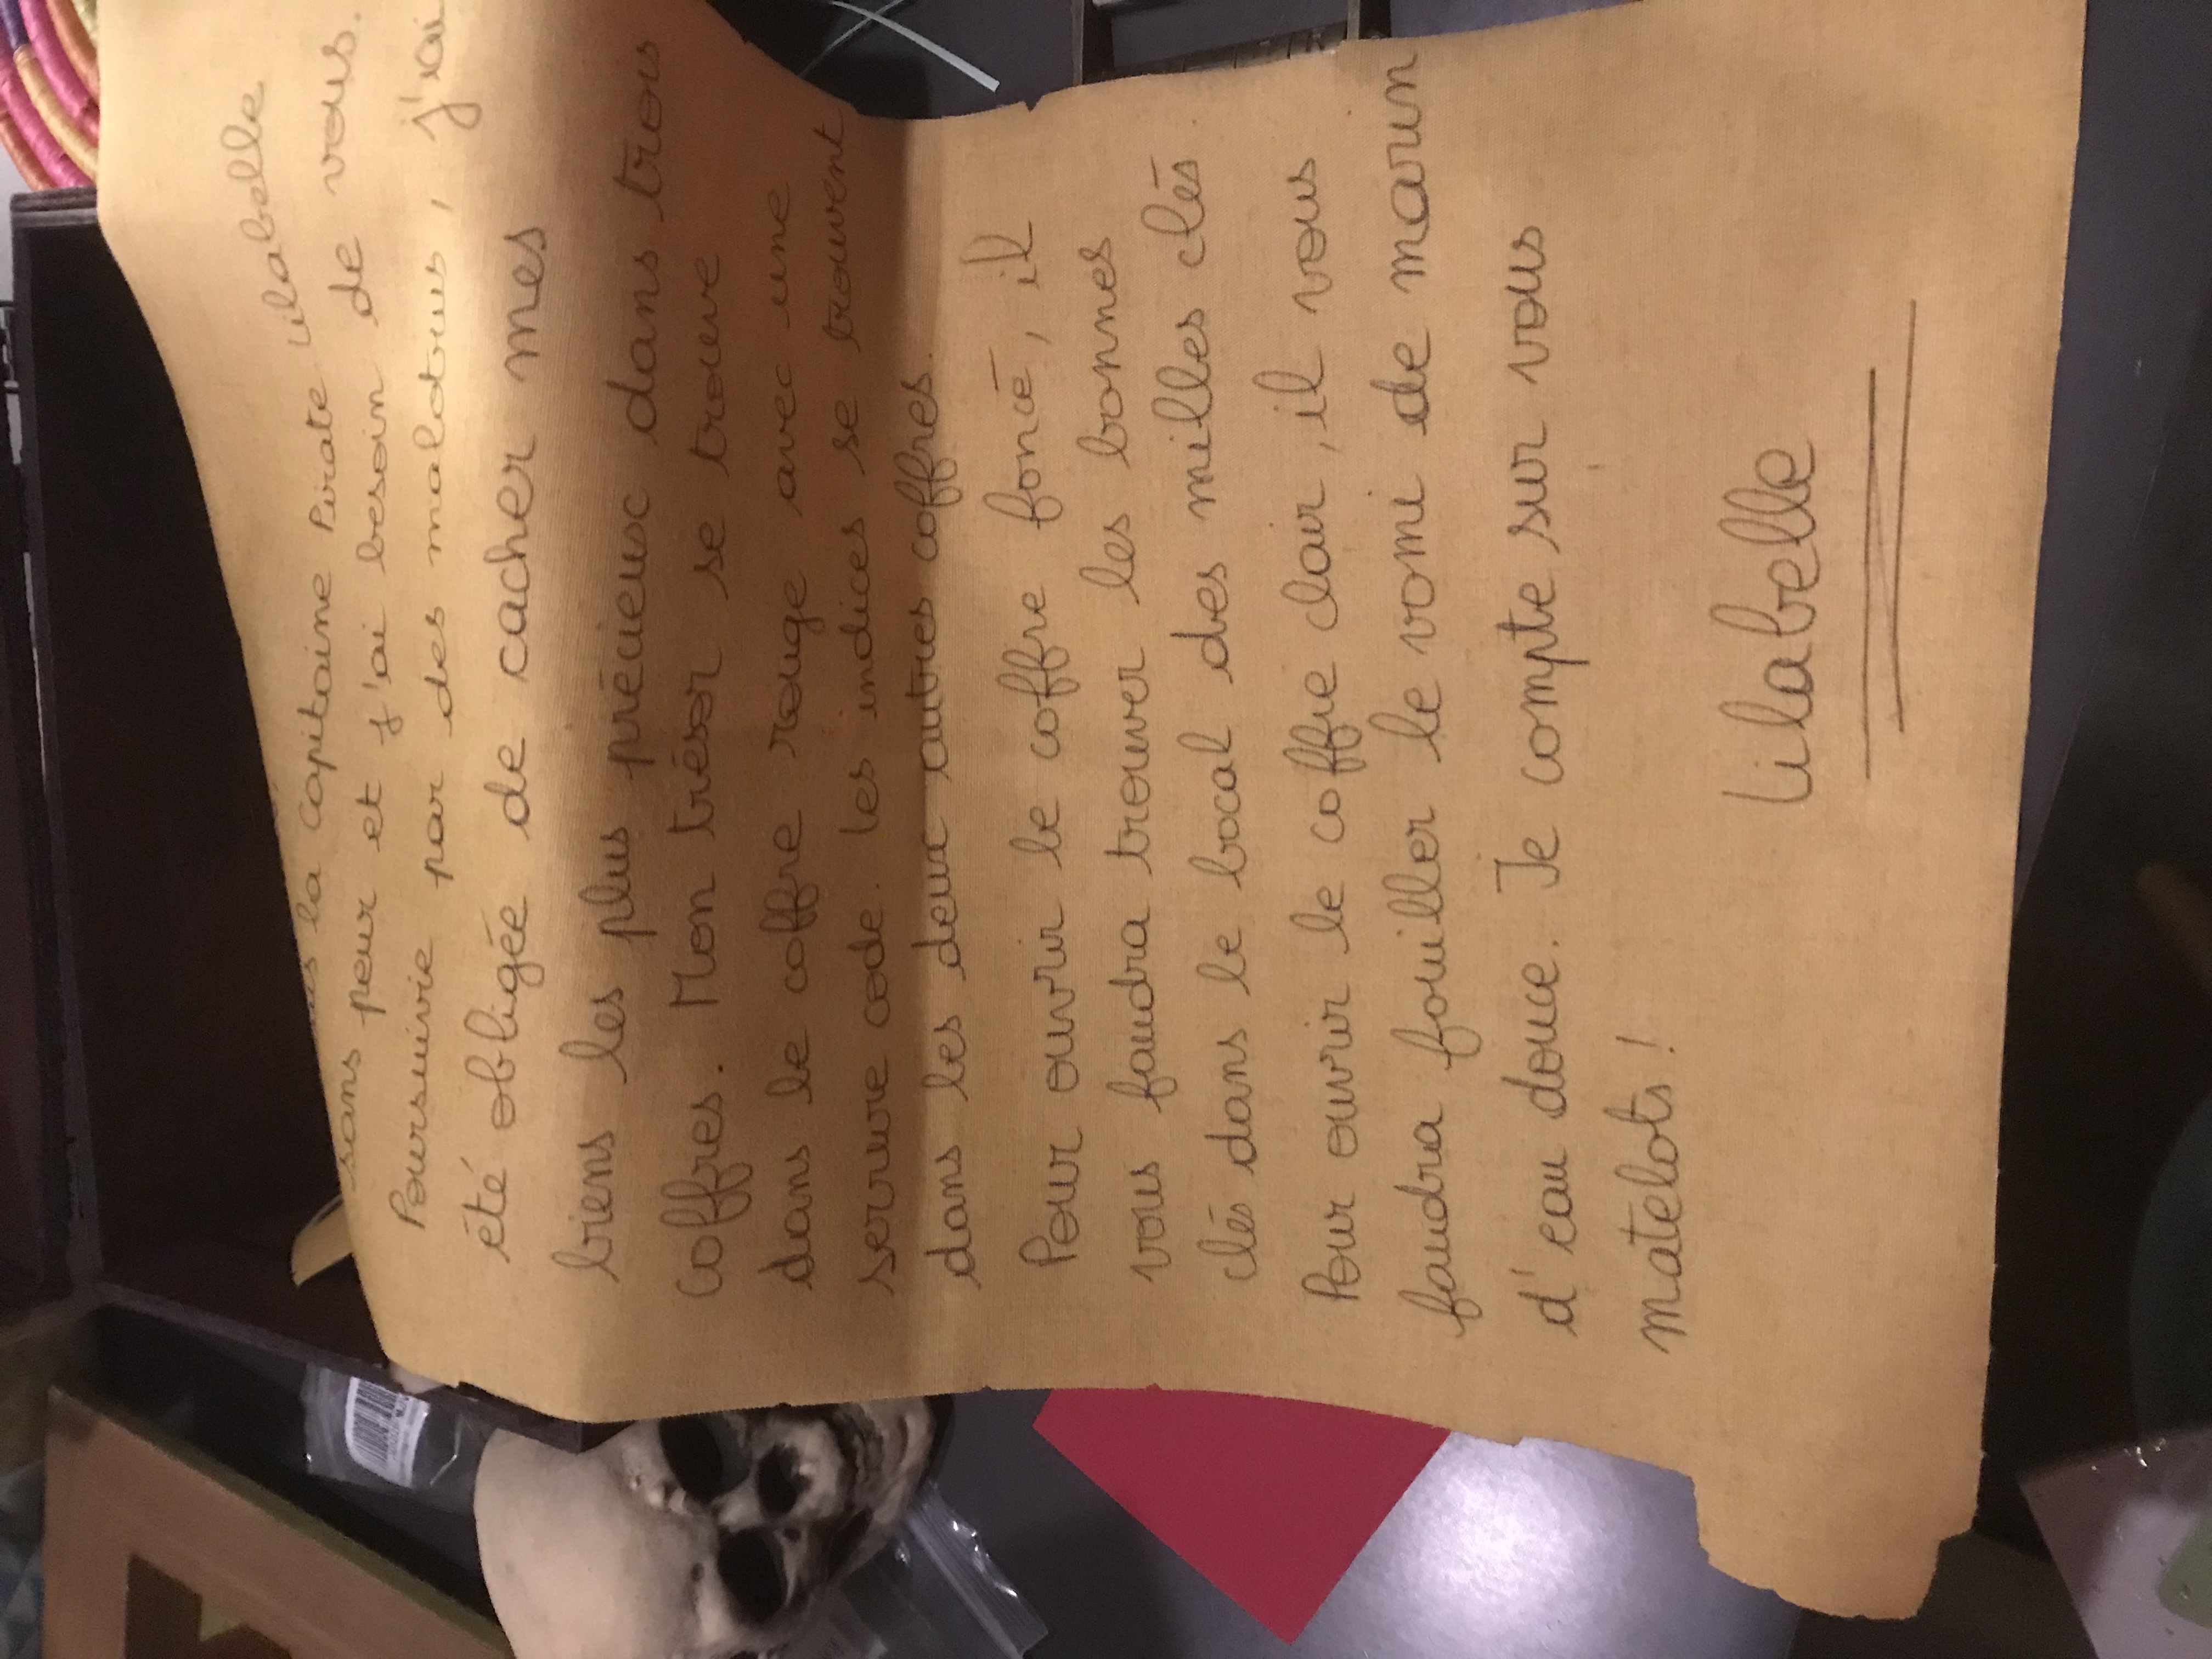 la Capitaine Pirate Lilabelle
sans peur et j'ai besoin de vous.
Poursuivie par des malotrus, j'ai
été obligée de cacher mes
biens les plus précieux dans trois
coffres. Mon trésor se trouve
dans le coffre rouge avec une
serrure code. Les indices se trouvent
dans les deux autres coffres.
Pour ouvrir le coffre foncé, il
vous faudra trouver les bonnes
clés dans le bocal des milles clés.
Pour ouvrir le coffre clair, il vous
faudra fouiller le vomi de marin
d'eau douce. Je compte sur vous
matelots !
Lilabelle